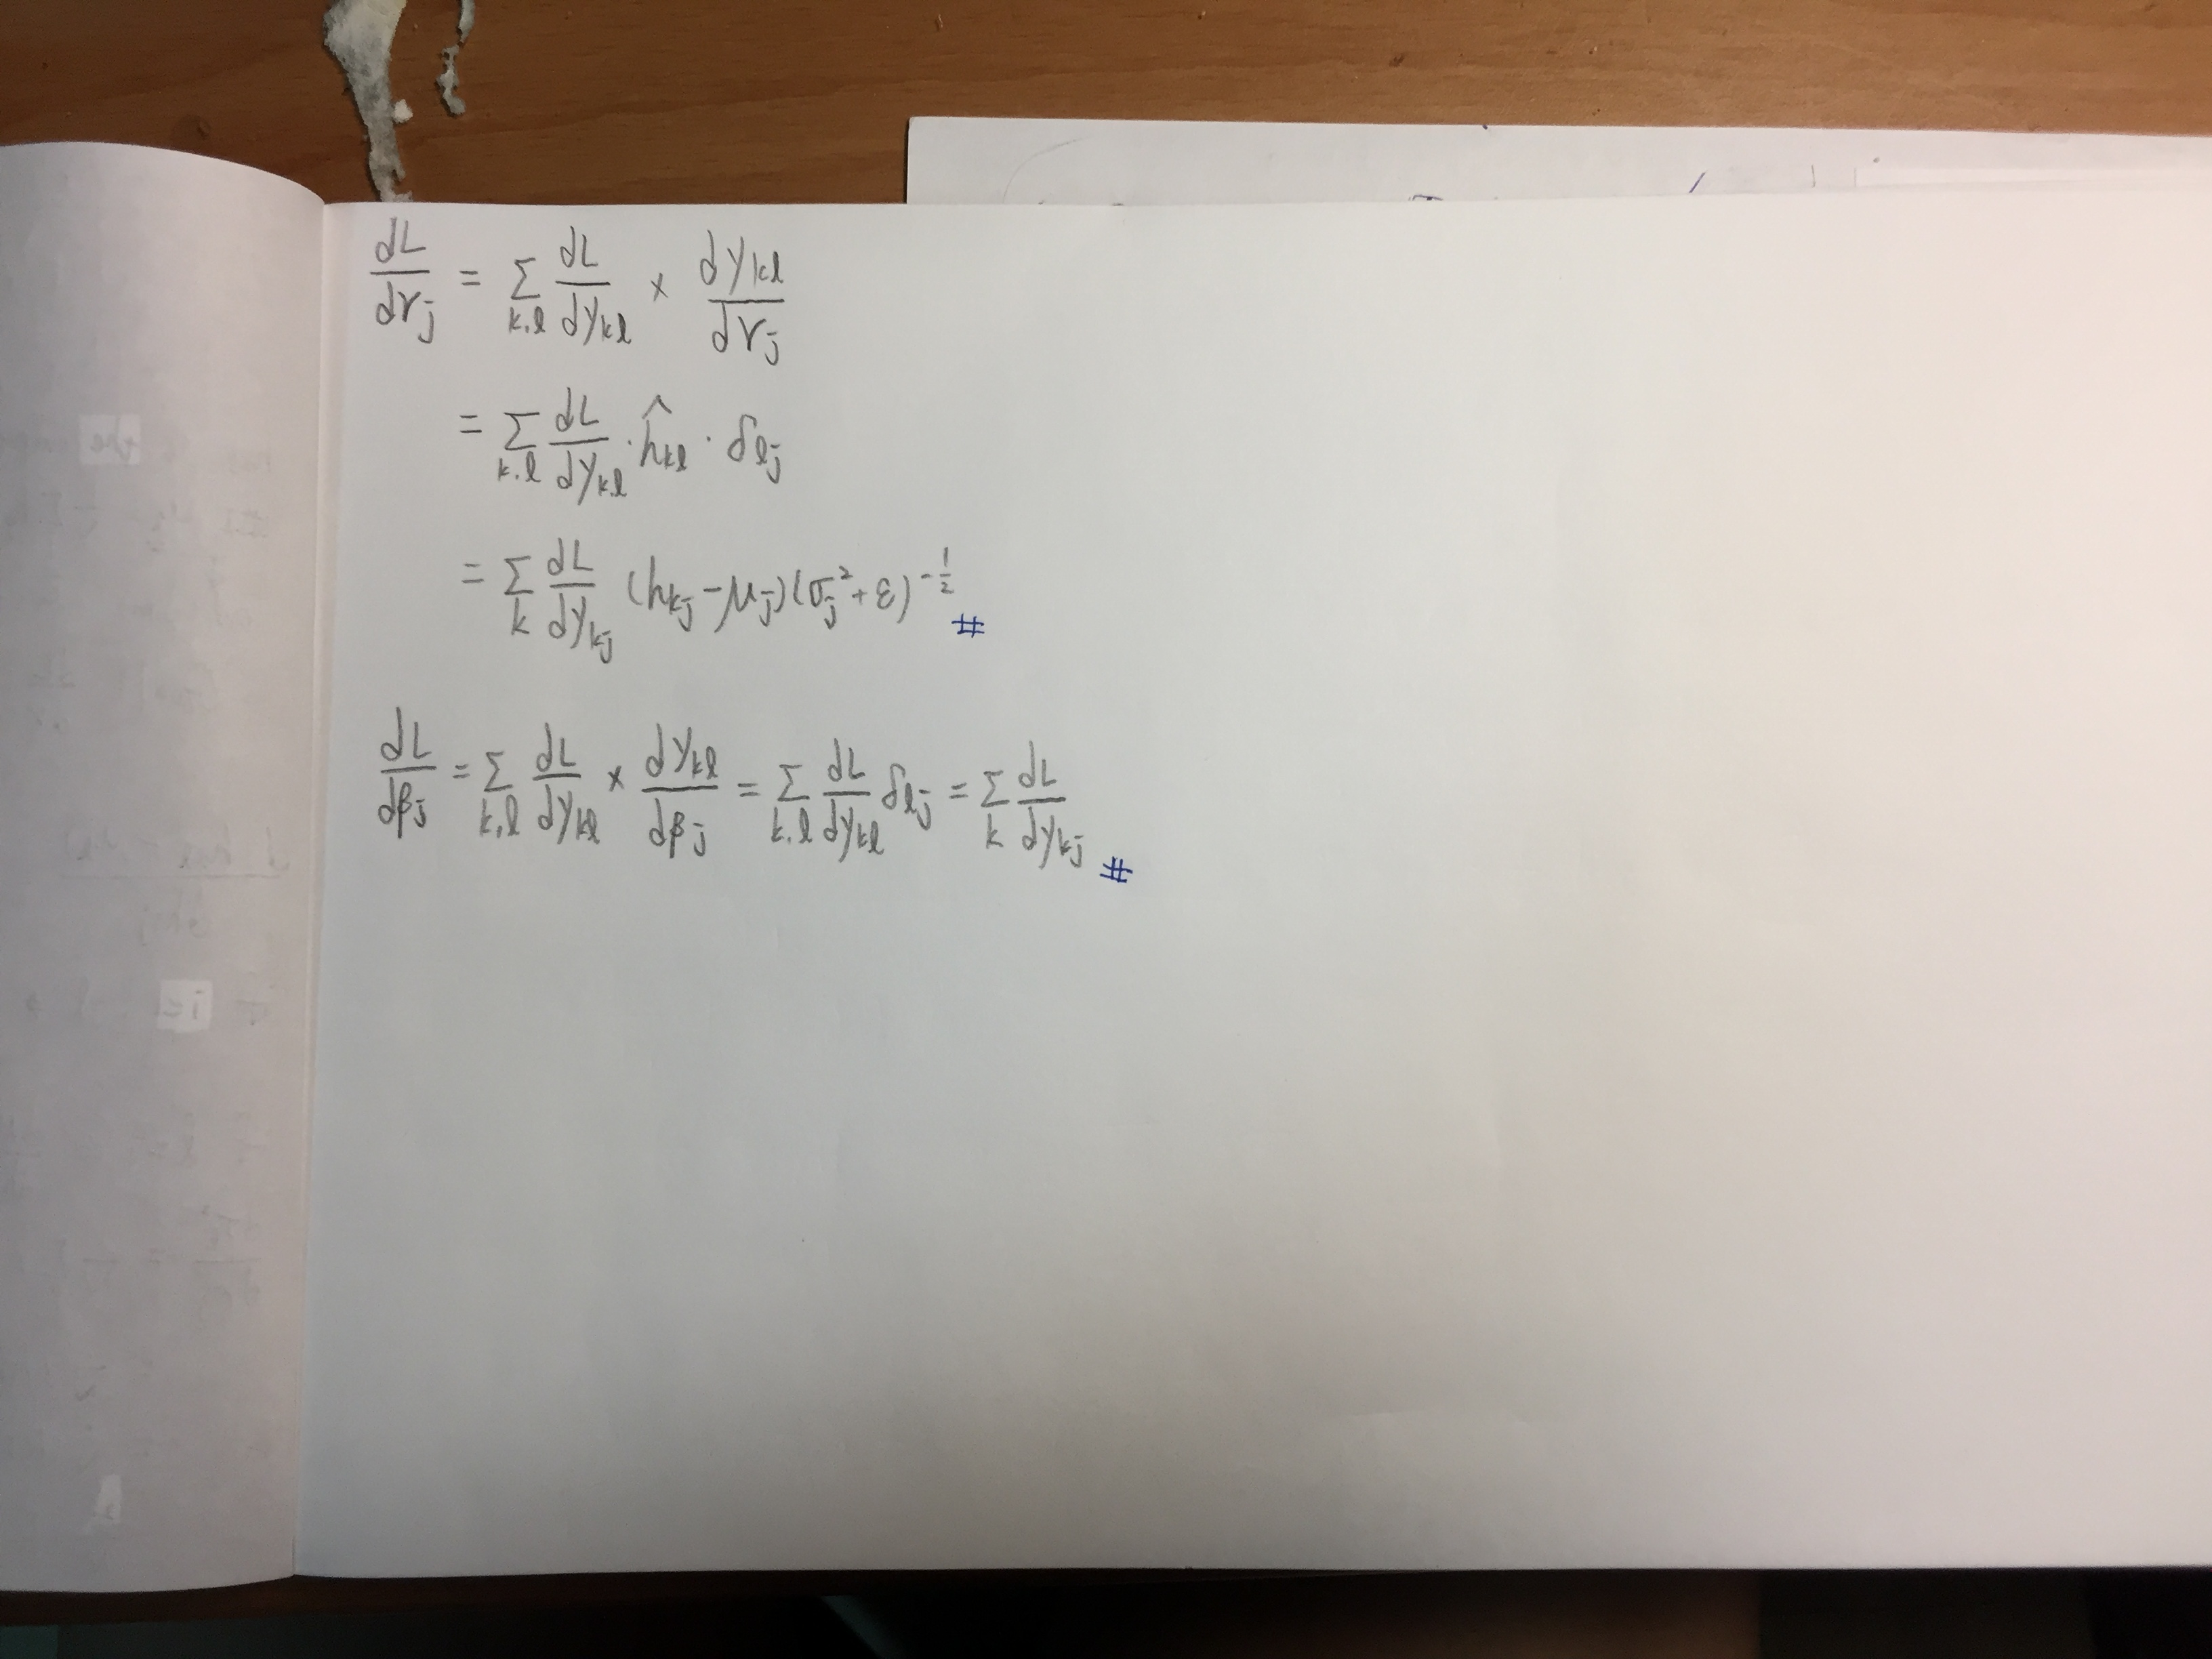 dL/dγj = Σk,l dL/dykl × dykl/dγj
= Σk,l dL/dykl · ĥkl · δlj
= Σk dL/dykj (hkj - μj)(σj² + ε)^-1/2 #
dL/dβj = Σk,l dL/dykl × dykl/dβj = Σk,l dL/dykl δlj = Σk dL/dykj #